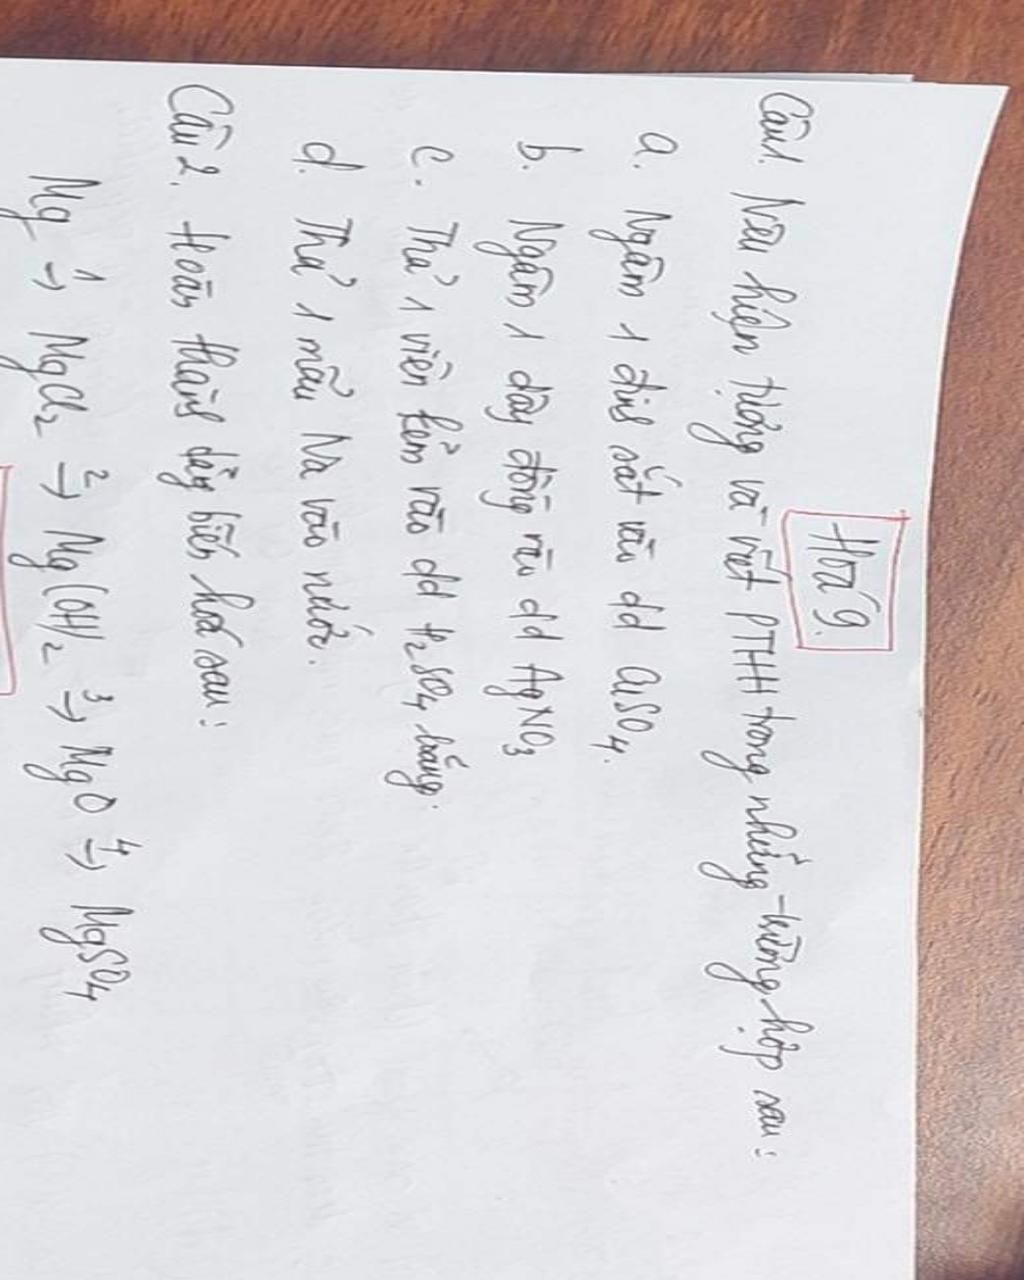 Hoá 9.
Câu 1. Nêu hiện tượng và viết PTHH trong những trường hợp sau:
a. Ngâm 1 đinh sắt vào dd CuSO4.
b. Ngâm 1 dây đồng vào dd AgNO3
c. Thả 1 viên kẽm vào dd H2SO4 loãng.
d. Thả 1 mẫu Na vào nước.
Câu 2. Hoàn thành dãy biến hoá sau:
Mg 1→ MgCl2 2→ Mg(OH)2 3→ MgO 4→ MgSO4